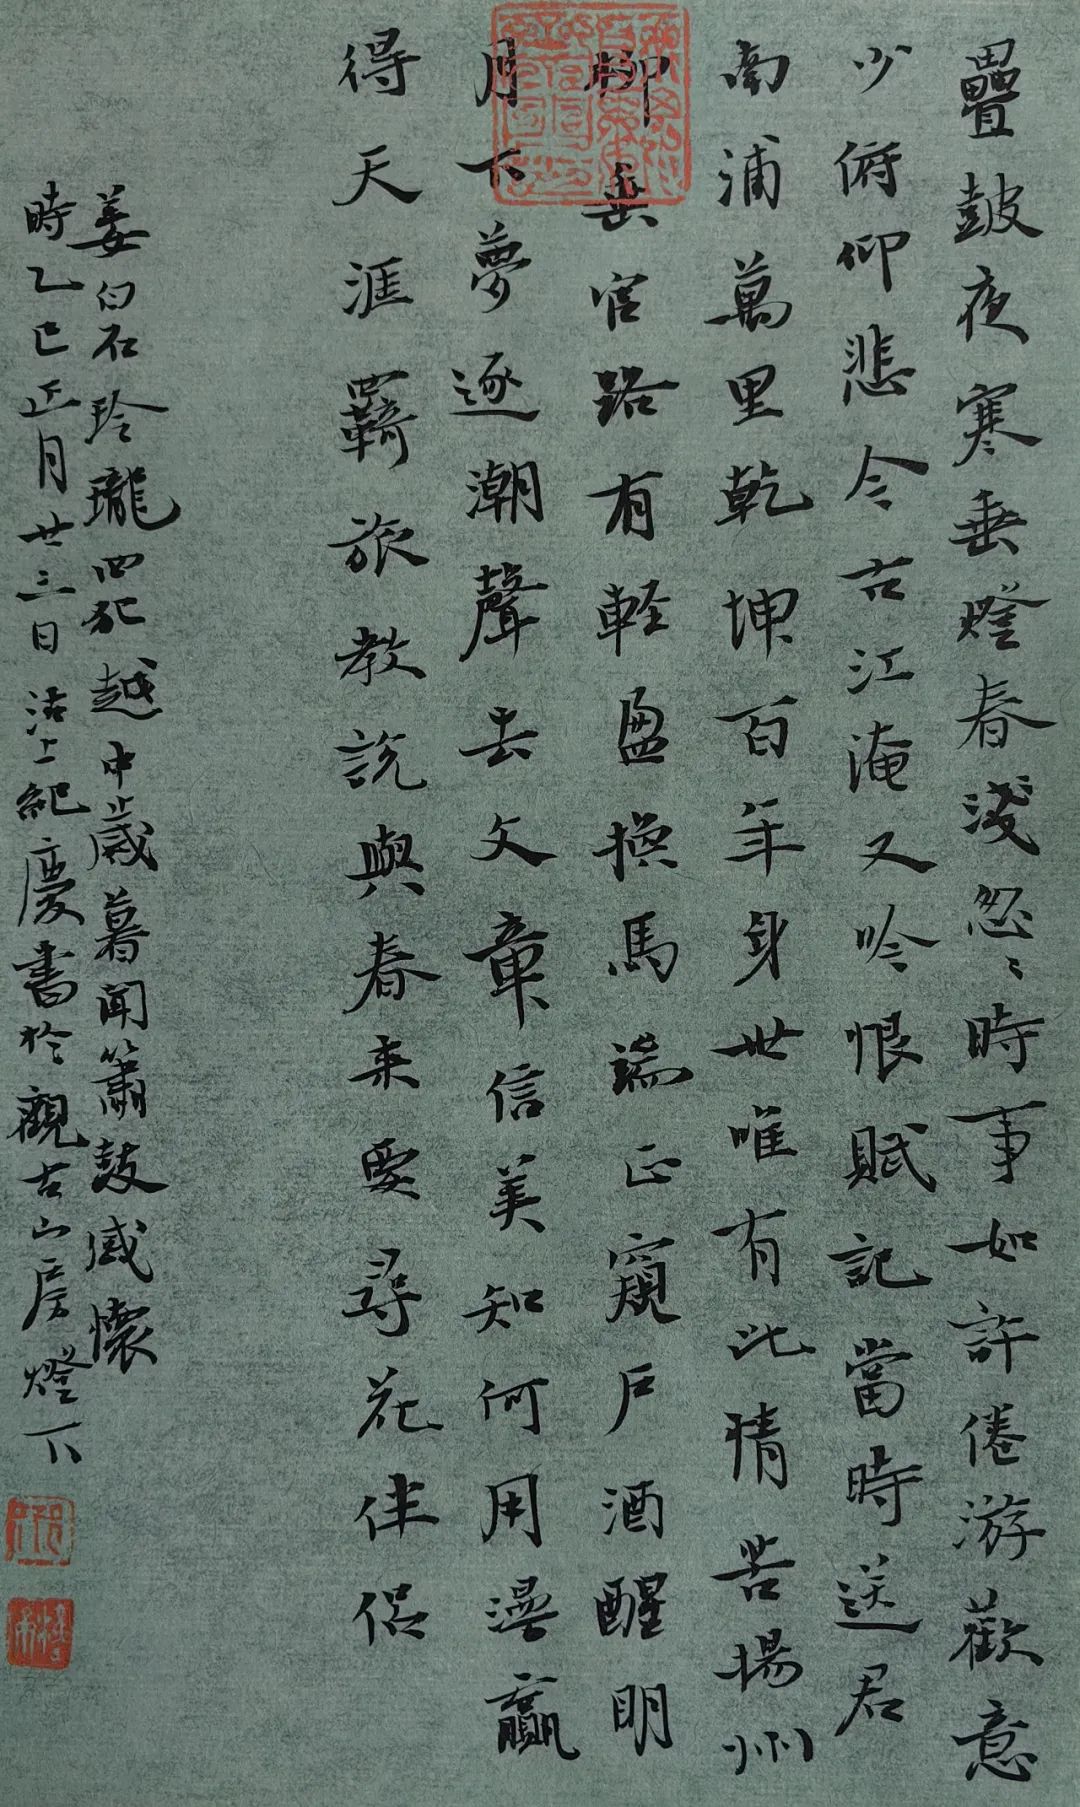 疊鼓夜寒垂燈春淺怱々時事如許倦游歡意
少俯仰悲今古江淹又吟恨賦記當時送君
南浦萬里乾坤百年身世唯有此情苦揚州
柳垂官路有輕盈換馬端正窺戶酒醒明
月下夢逐潮聲去文章信美知何用漫贏
得天涯羈旅教說與春來要尋花伴侶
姜白石玲瓏四犯越中歲暮聞簫鼓感懷
時乙巳正月廿三日沽上紀慶書於觀古山房燈下